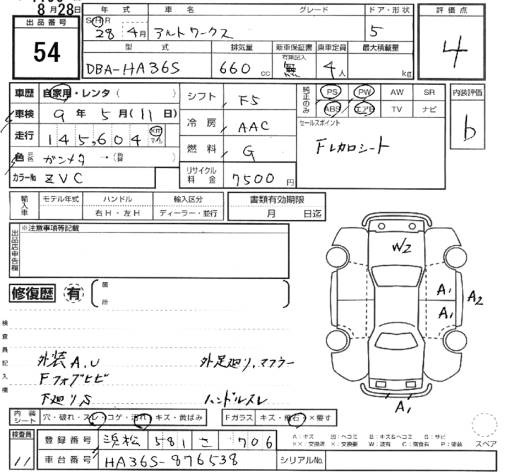 8月28日
出品番号
54
年式
車名
グレード
ドア・形状
評価点
S・H・R
28年 4月
アルトワークス
5
4
型式
排気量
新車保証書
乗車定員
最大積載量
DBA-HA36S
660 cc
無
4人
kg
車歴
自家用・レンタ( )
シフト
F5
純正のみ
PS
PW
AW
SR
内装評価
b
車検
9年 5月(11日)
ABS
エアB
TV
ナビ
冷房
AAC
セールスポイント
Fレカロシート
走行
145,604
km
色
ガンメタ
燃料
G
カラーNo
ZVC
リサイクル料金
7500円
輸入車
モデル年式
ハンドル
輸入区分
書類有効期限
右H・左H
ディーラー・並行
月 日迄
出品店申告欄
※注意事項等記載
W2
修復歴
有
箇所
A1
A1
A2
検査員記入欄
外装A,U
外足廻りサ,マフラー
Fフォグヒビ
下廻りS
ハンドルスレ
A1
内装シート
穴・破れ・スレ・コゲ・汚れ・キズ・黄ばみ
Fガラス
キズ・飛石・×要す
検査員
11
登録番号
浜松 581 さ 706
A:キズ U:ヘコミ B:キズ&ヘコミ S:サビ
XX:交換済 X:交換要 W:波有 C:腐食有 P:塗装
スペア
車台番号
HA36S-876538
シリアルNo.